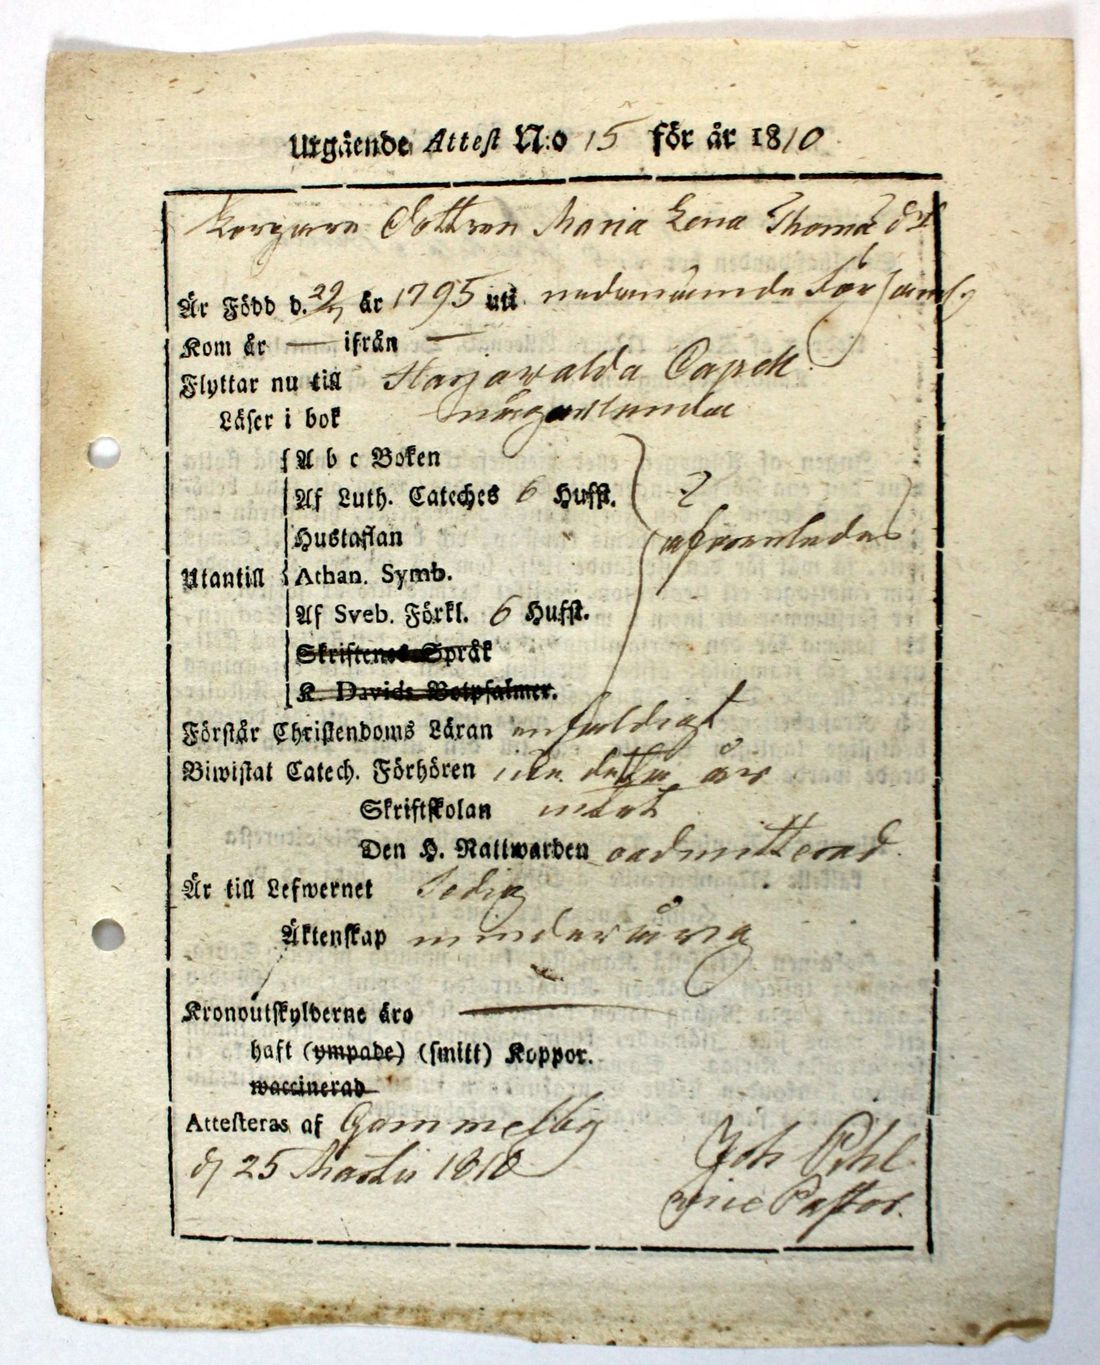 Utgående Attest N:o 15 för år 1810
Dottren Maria Lena Thomæ dr
Är Född d. 29 år 1795 uti nedanämde Församl.
Kom år — ifrån —
Flyttar nu till Capell
Läser i bok
A b c Boken
Af Luth. Cateches 6 Hufst. 2
Hustaflan
Utantill Athan. Symb.
Af Sveb. Förkl. 6 Hufst.
Skriftenes Språk
K. Davids Botpsalmer.
Förstår Christendoms Läran enfaldigt
Biwistat Catech. Förhören detta år
Skriftskolan intet
Den H. Nattwarden oadmitterad
Är till Lefwernet Sedig
Äktenskap minderårig
Kronoutskylderne äro —
haft (ympade) (smitt) Koppor.
waccinerad
Attesteras af Gammelby
d 25 Martii 1810
Joh Pihl
vice Pastor.